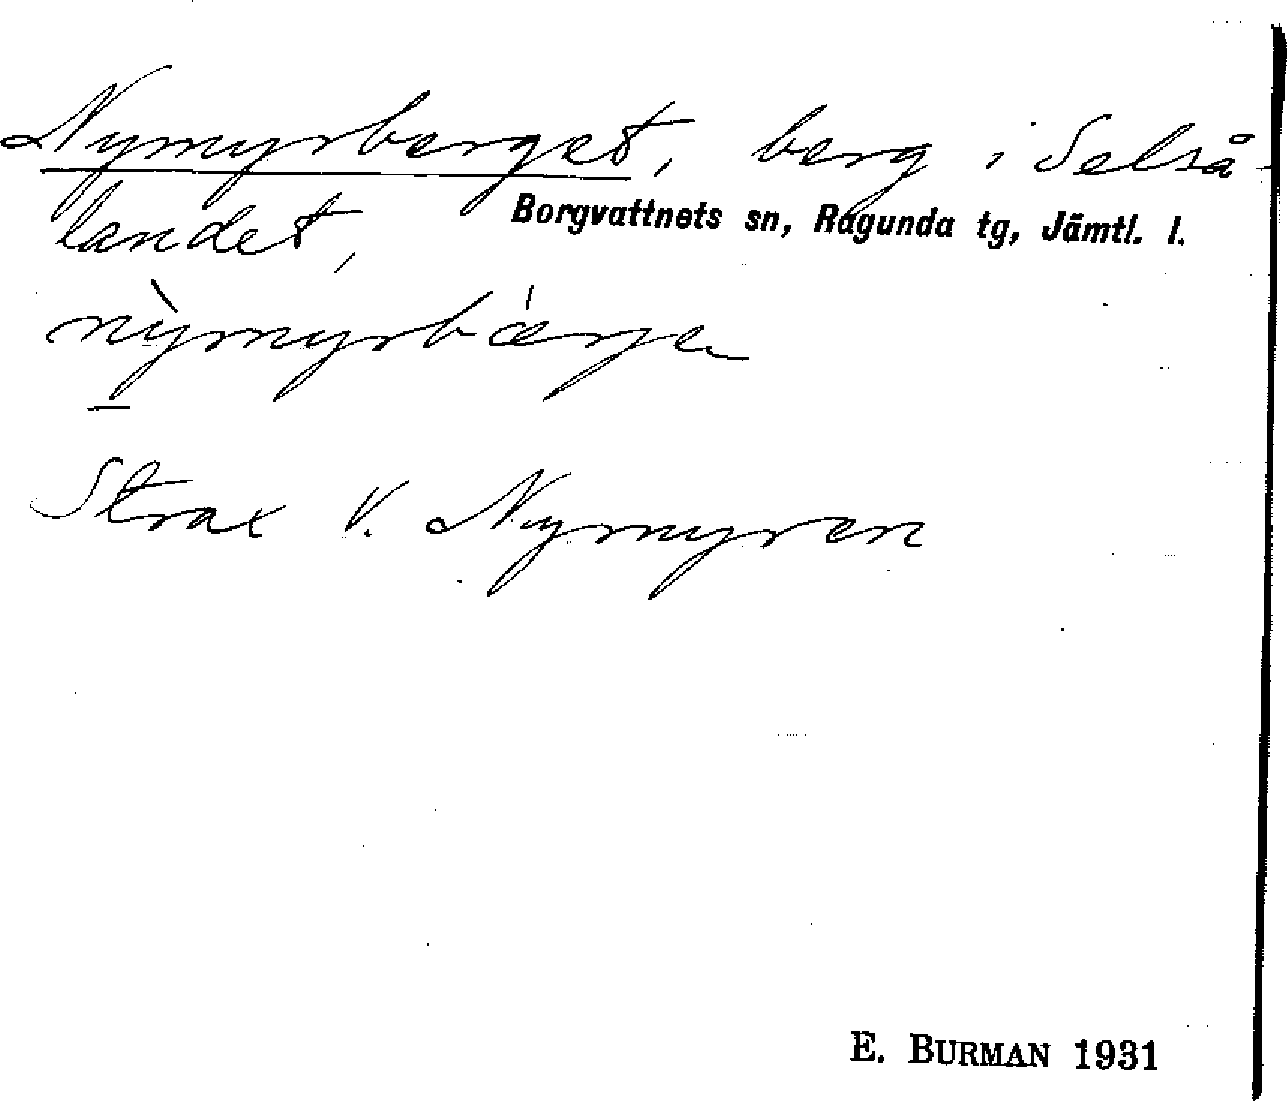 Nymyrberget, berg i Selså-
landet, Borgvattnets sn, Ragunda tg, Jämtl. l.
nỳmyrbærje
Strax V. Nymyren
E. BURMAN 1931